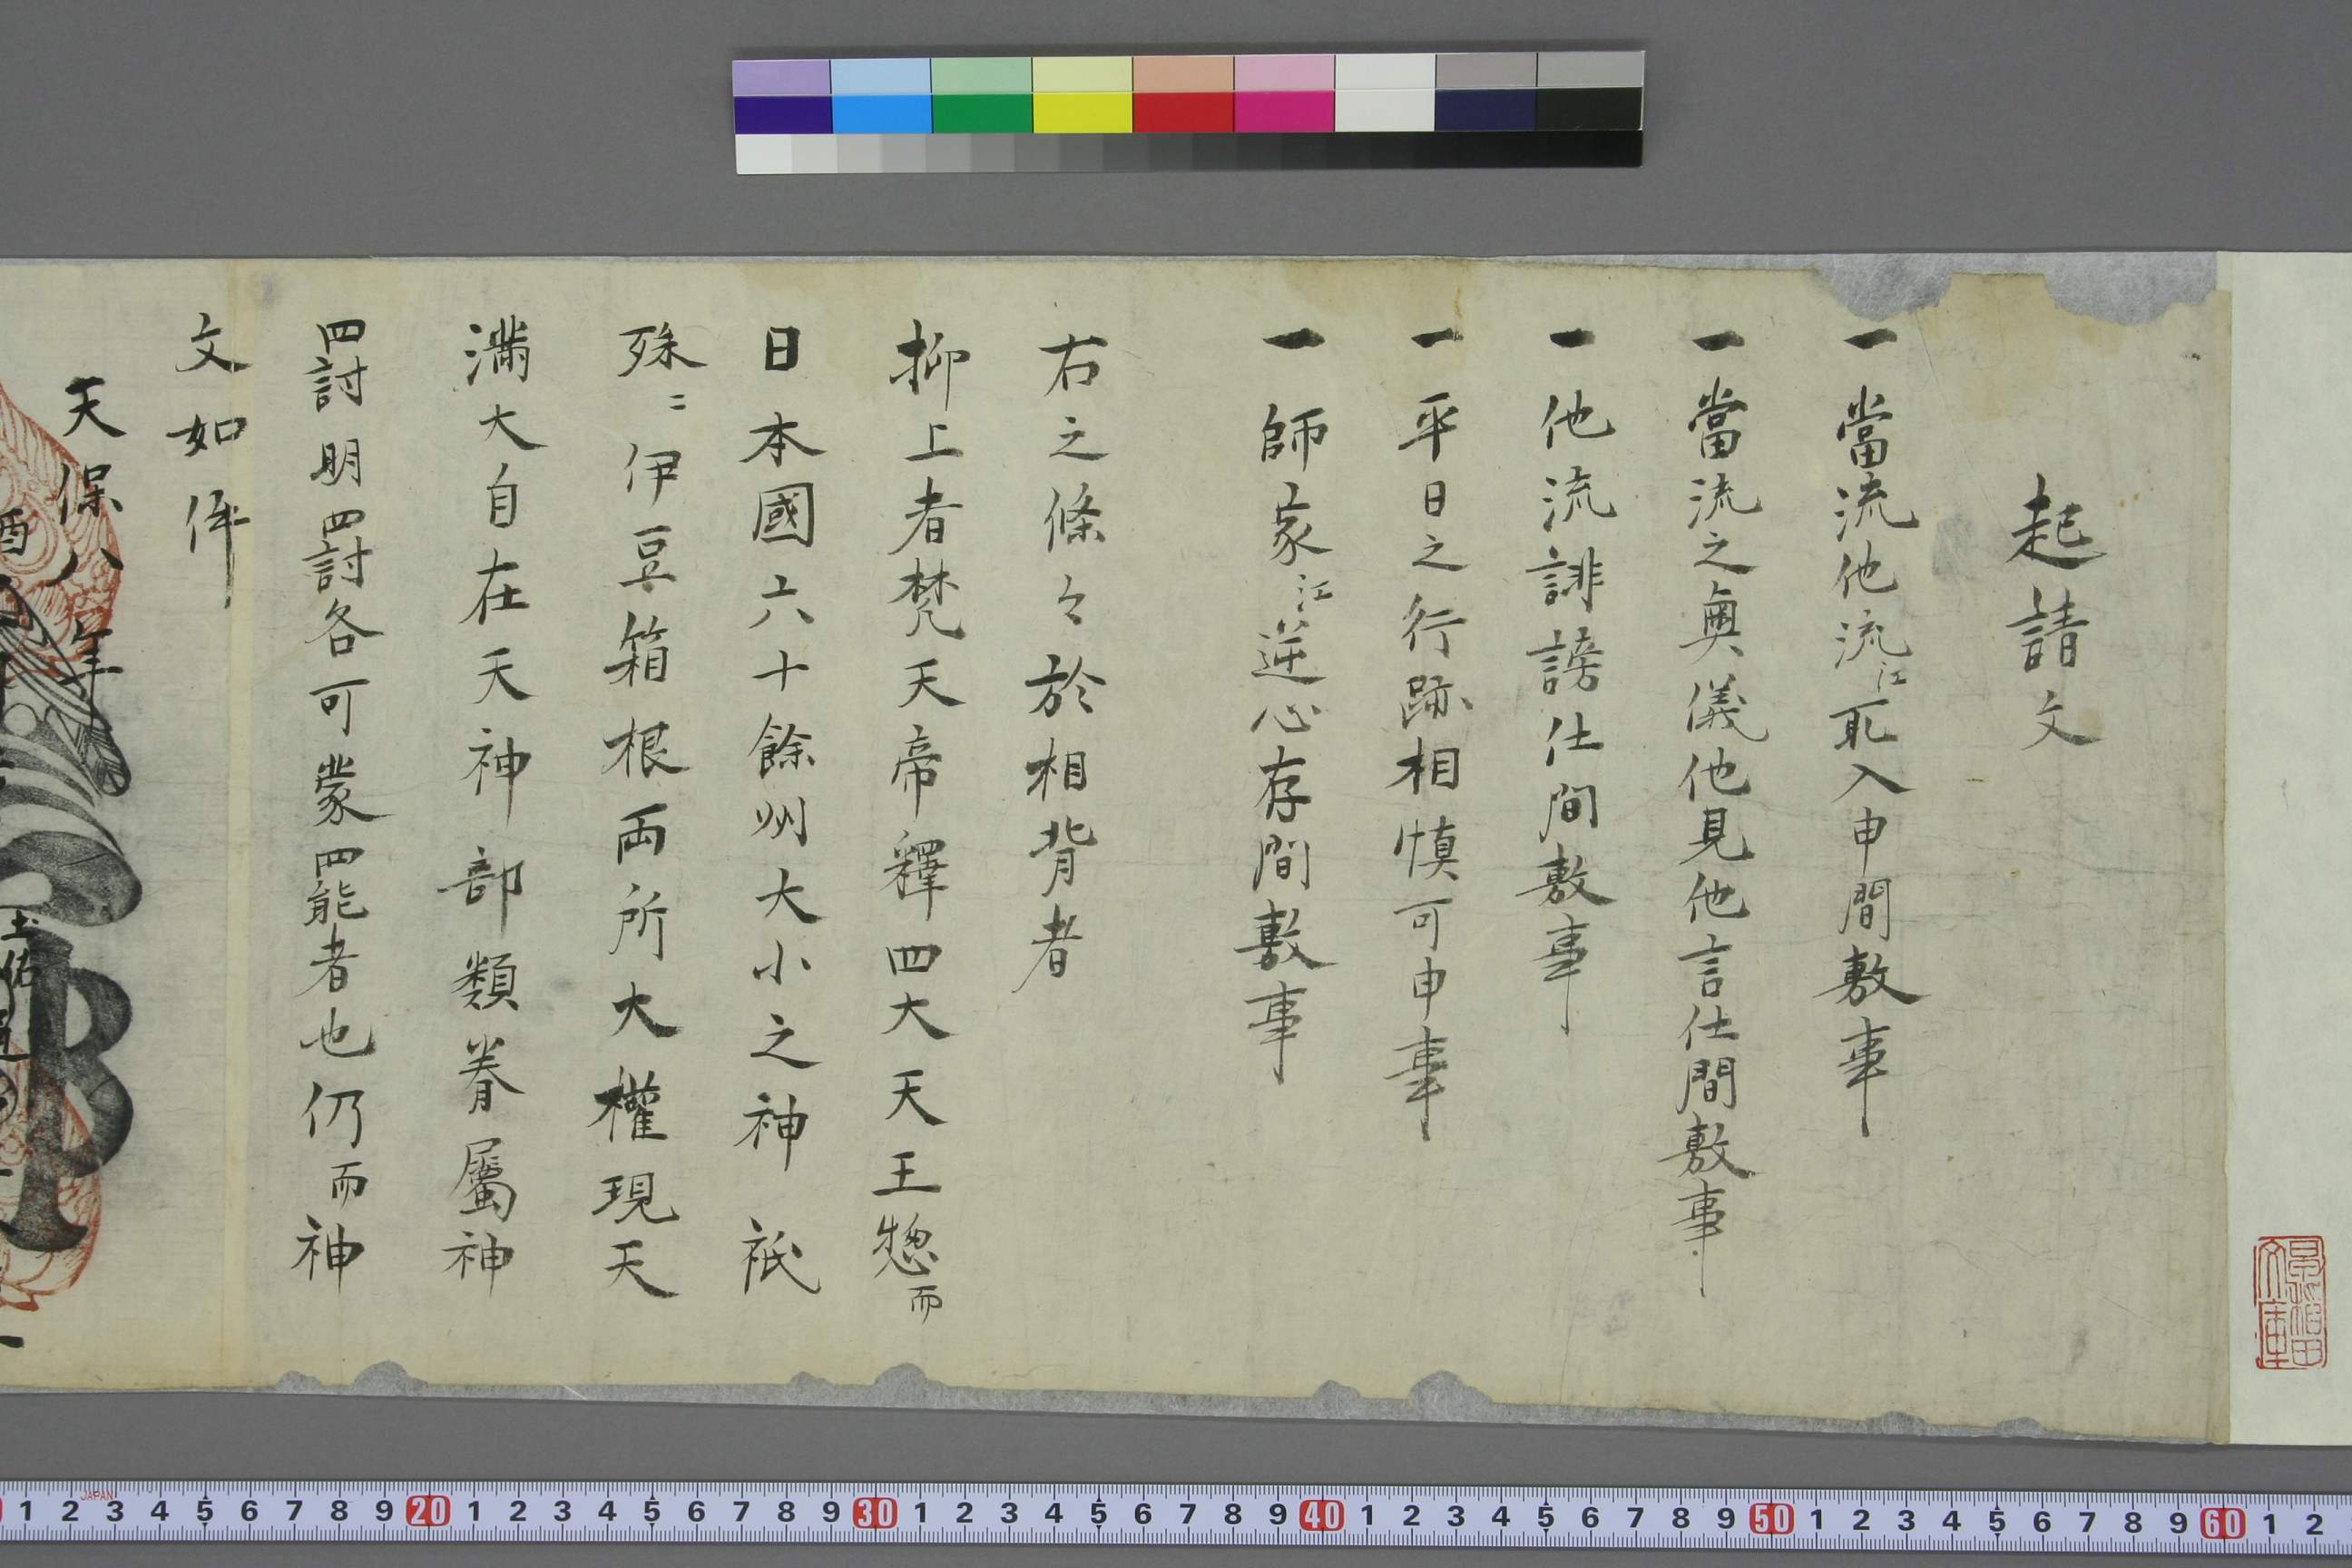 起請文
一當流他流江取入申間敷事
一當流之奥儀他見他言仕間敷事
一他流誹謗仕間敷事
一平日之行跡相慎可申事
一師家江逆心存間敷事
右之條々於相背者
抑上者梵天帝釋四大天王惣而
日本國六十餘州大小之神祇
殊ニ伊豆箱根両所大權現天
満大自在天神部類眷屬神
罰明罰各可蒙罷者也仍而神
文如件
天保八年
酉
1 2 3 4 5 6 7 8 9 20 1 2 3 4 5 6 7 8 9 30 1 2 3 4 5 6 7 8 9 40 1 2 3 4 5 6 7 8 9 50 1 2 3 4 5 6 7 8 9 60 1 2
JAPAN